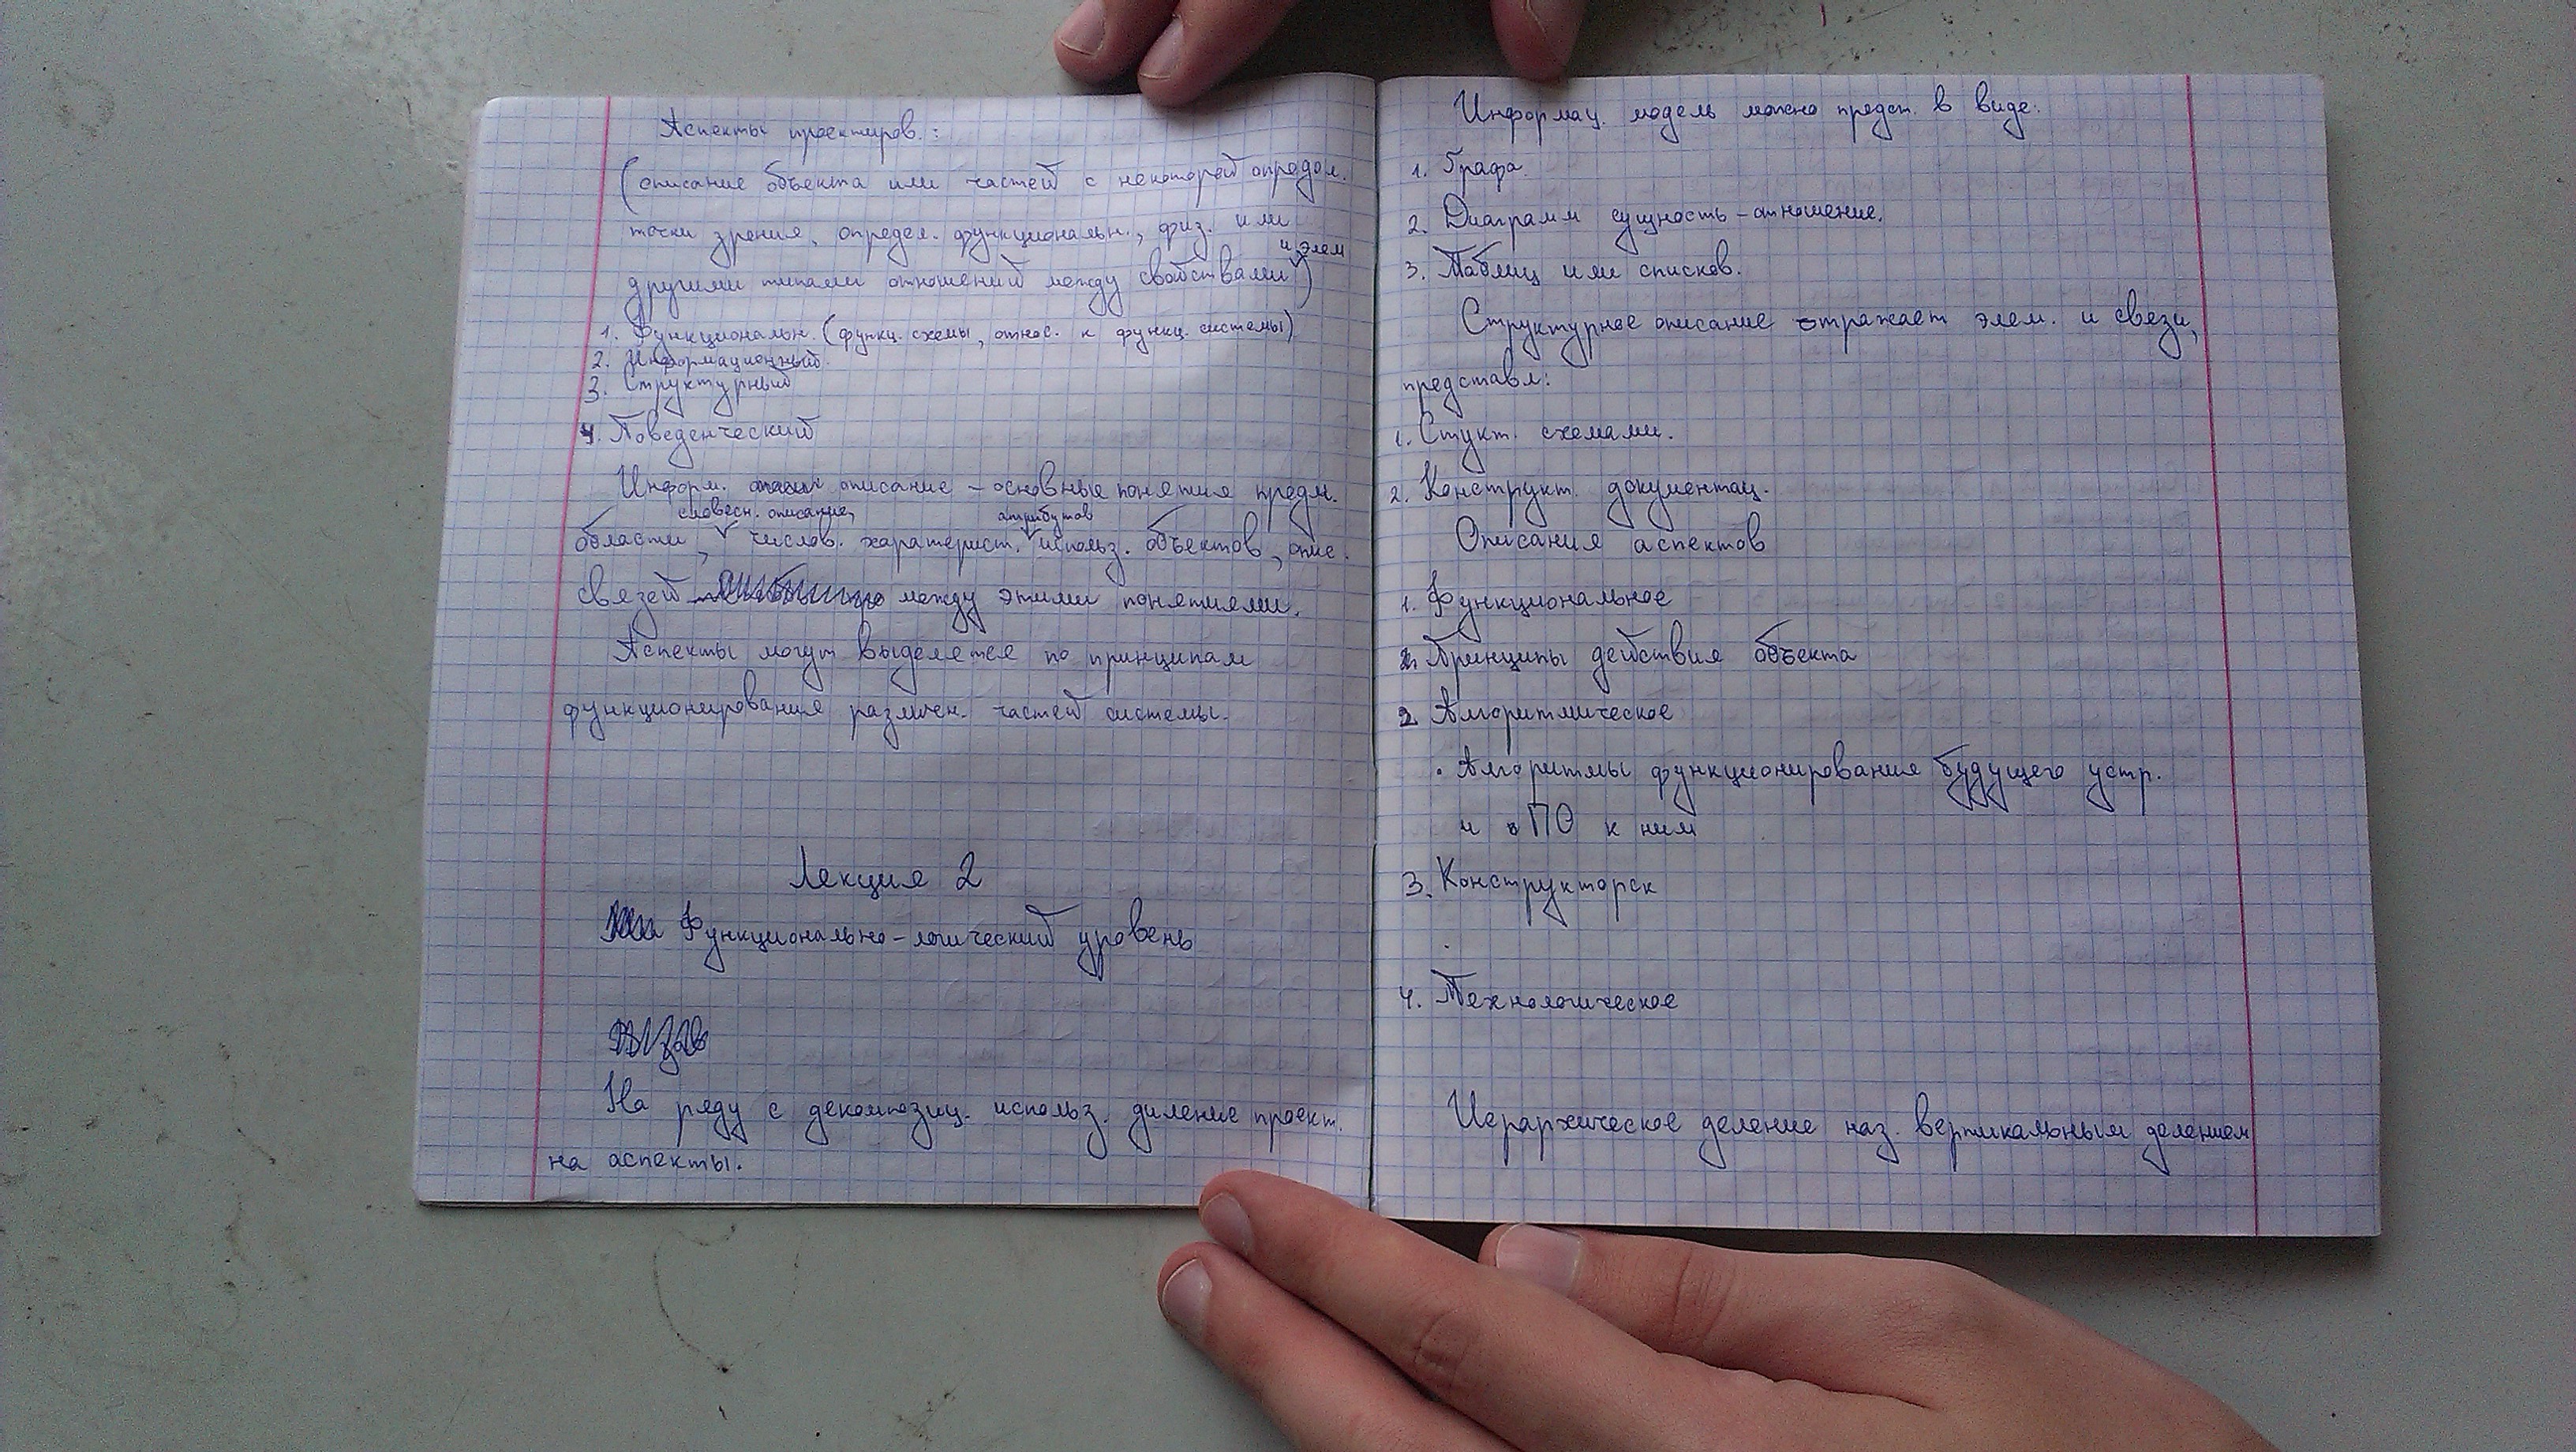 Аспекты проектиров.:
(описание объекта или частей с некоторой определ.
точки зрения, определ. функциональн., физ. или
и элем
другими типами отношений между свойствами)
1. Функциональн. (функц. схемы, относ. к функц. системы)
2. Информационный.
3. Структурный
4. Поведенческий
Информ. описание – основные понятия предм.
словесн. описание, атрибутов
области, числов. характерист. использ. объектов, опис.
связей между этими понятиями.
Аспекты могут выделятся по принципам
функционирования различн. частей системы.
Лекция 2
Функционально-логический уровень
На ряду с декомпозиц. использ. диление проект.
на аспекты.
Информац. модель можно предст. в виде:
1. Графа
2. Диаграмм сущность – отношение.
3. Таблиц или списков.
Структурное описание отражает элем. и связи,
представл:
1. Стукт. схемами.
2. Конструкт. документац.
Описания аспектов
1. Функциональное
Принципы действия объекта
2 Алгоритмическое
· Алгоритмы функционирования будущего устр.
и ПО к ним
3. Конструкторск
·
4. Технологическое
Иерархическое деление наз. вертикальным делением